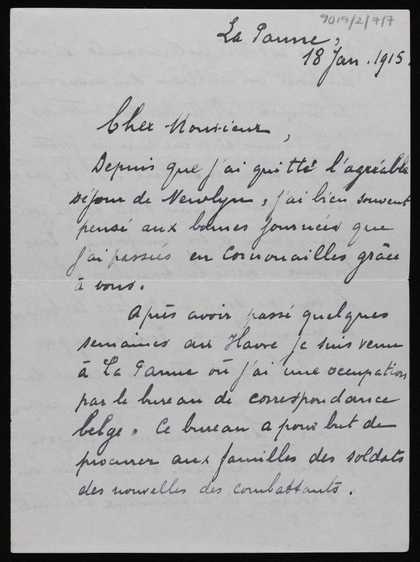 9019/2/7/7
La Panne,
18 Jan. 1915.
Cher Monsieur,
Depuis que j'ai quitté l'agréable
séjour de Newlyn, j'ai bien souvent
pensé aux bonnes journées que
j'ai passées en Cornouailles grâce
à vous.
Après avoir passé quelques
semaines au Havre je suis venu
à La Panne où j'ai une occupation
par le bureau de correspondance
belge. Ce bureau a pour but de
procurer aux familles des soldats
des nouvelles des combattants.